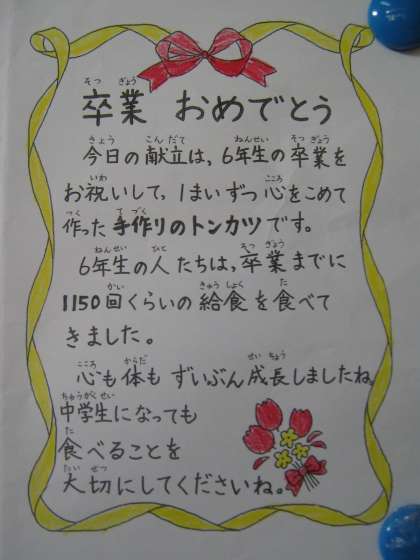 卒業 おめでとう
今日の献立は、6年生の卒業を
お祝いして、1まいずつ心をこめて
作った手作りのトンカツです。
6年生の人たちは、卒業までに
1150回くらいの給食を食べて
きました。
心も体もずいぶん成長しましたね。
中学生になっても
食べることを
大切にしてくださいね。